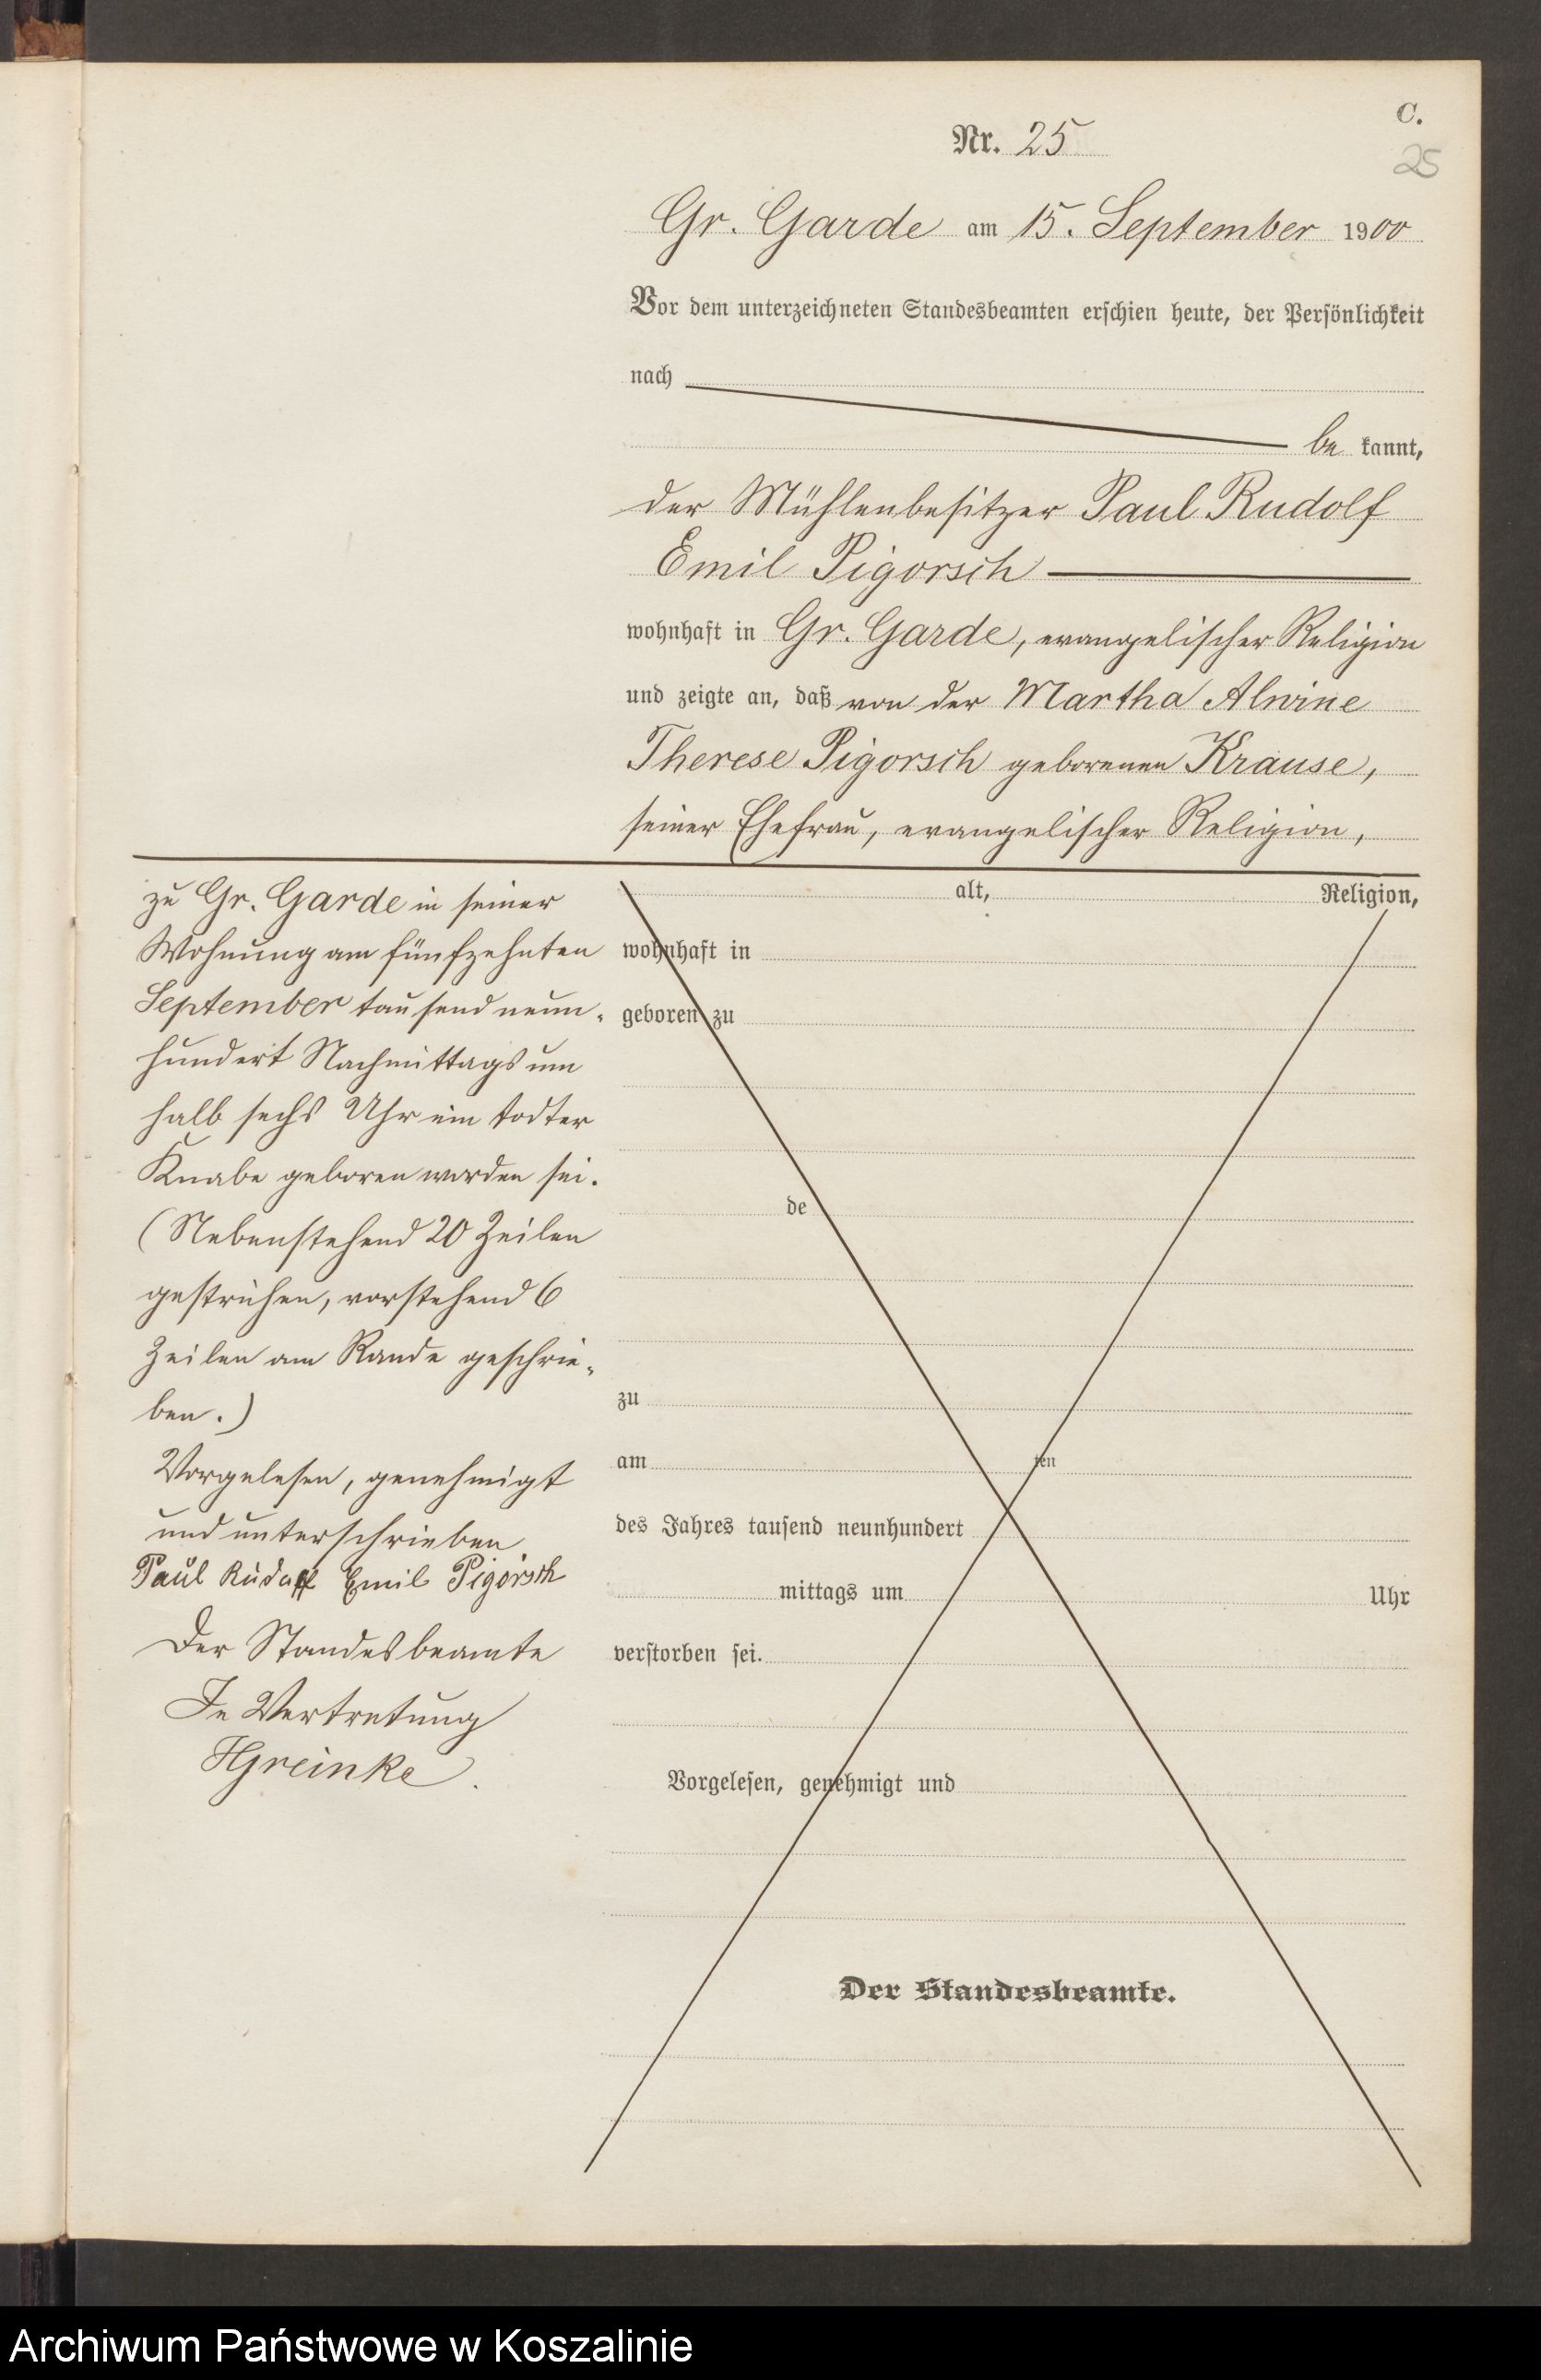 C.
Nr. 25
25
Gr. Garde am 15. September 1900
Vor dem unterzeichneten Standesbeamten erschien heute, der Persönlichkeit
nach
be kannt,
der Mühlenbesitzer Paul Rudolf
Emil Pigorsch
wohnhaft in Gr. Garde, evangelischer Religion
und zeigte an, daß von der Martha Alwine
Therese Pigorsch geborenen Krause,
seiner Ehefrau, evangelischer Religion,
zu Gr. Garde in seiner
Wohnung am fünfzehnten
September tausend neun-
hundert Nachmittags um
halb sechs Uhr ein todter
Knabe geboren worden sei.
(Nebenstehend 20 Zeilen
gestrichen, vorstehend 6
Zeilen am Rande geschrie-
ben.)
Vorgelesen, genehmigt
und unterschrieben
Paul Rudolf Emil Pigorsch
Der Standesbeamte
In Vertretung
HGreinke.
alt, Religion,
wohnhaft in
geboren zu
de
zu
am ten
des Jahres tausend neunhundert
mittags um Uhr
verstorben sei.
Vorgelesen, genehmigt und
Der Standesbeamte.
Archiwum Państwowe w Koszalinie